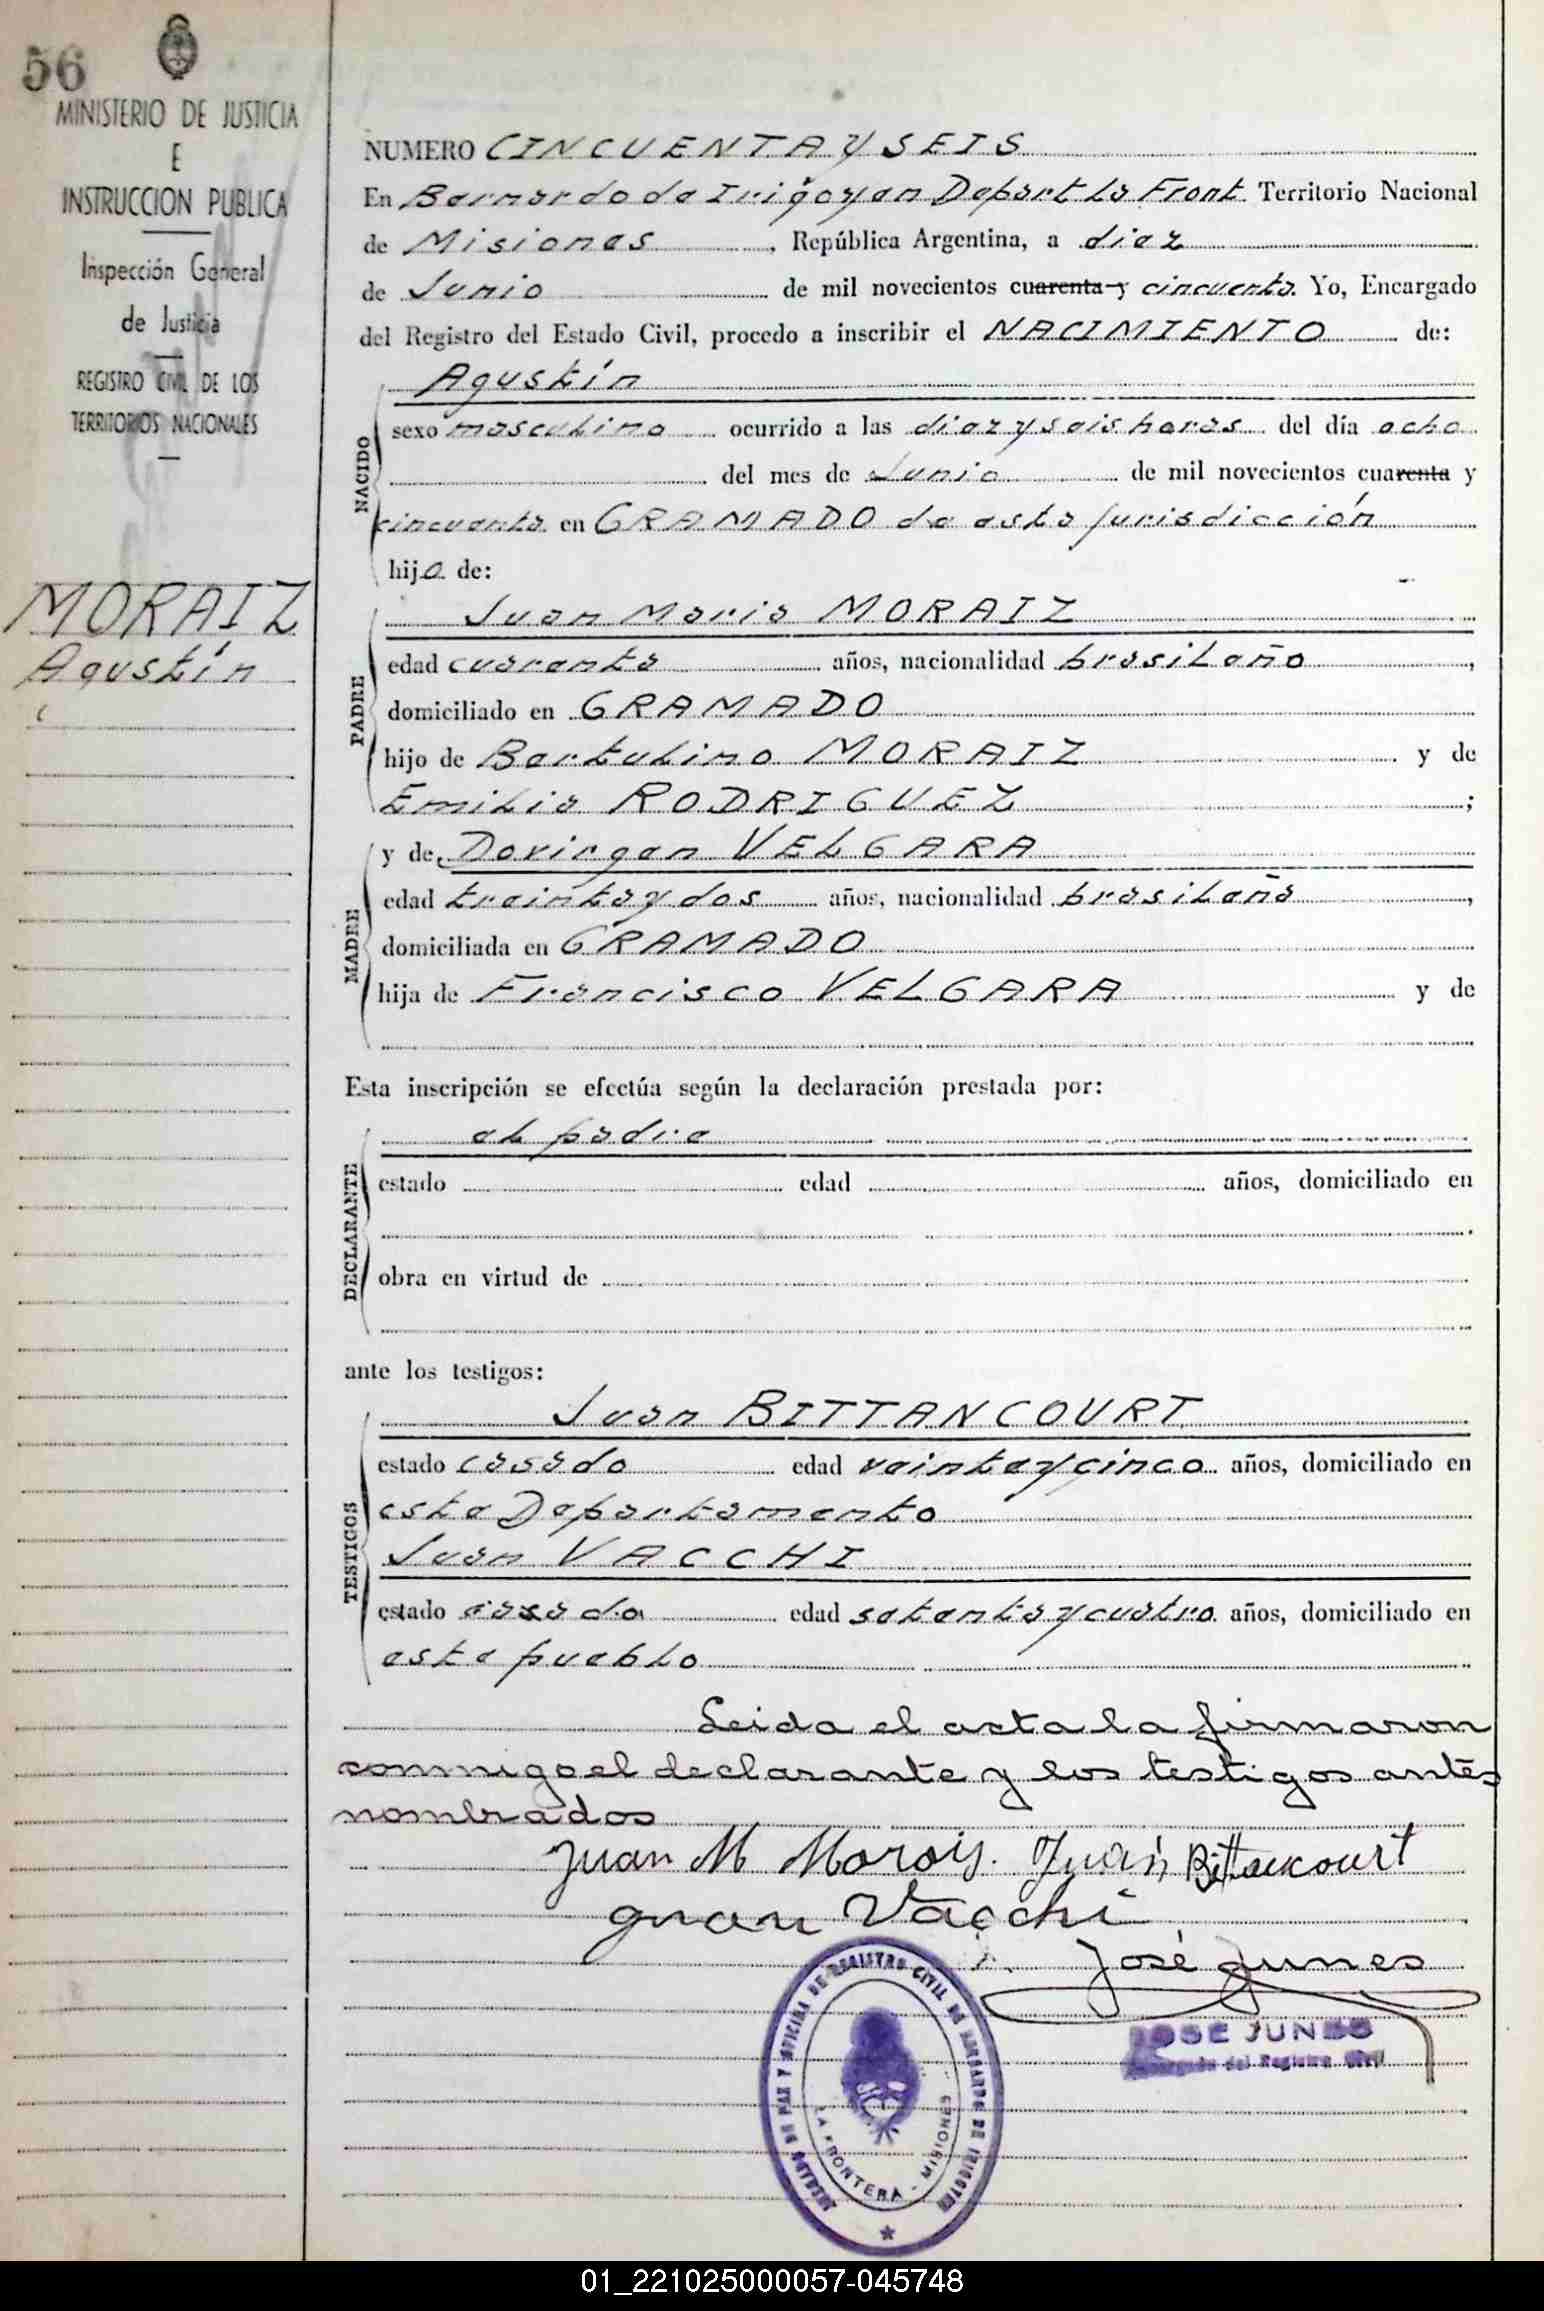 56
MINISTERIO DE JUSTICIA
E
INSTRUCCION PUBLICA
Inspección General
de Justicia
REGISTRO CIVIL DE LOS
TERRITORIOS NACIONALES
MORAIZ
Agustín
NUMERO CINCUENTA Y SEIS
En Bernardo de Irigoyen Depart La Front. Territorio Nacional
de Misiones, República Argentina, a diez
de Junio de mil novecientos cuarenta y cincuenta. Yo, Encargado
del Registro del Estado Civil, procedo a inscribir el NACIMIENTO de:
NACIDO
Agustín
sexo masculino ocurrido a las diez y seis horas del día ocho
del mes de Junio de mil novecientos cuarenta y
cincuenta en GRAMADO de esta jurisdicción
hijo de:
PADRE
Juan Maria MORAIZ
edad cuarenta años, nacionalidad brasileño,
domiciliado en GRAMADO
hijo de Bertulino MORAIZ y de
Emilia RODRIGUEZ;
MADRE
y de Dovirgen VELGARA
edad treinta y dos años, nacionalidad brasileña,
domiciliada en GRAMADO
hija de Francisco VELGARA y de
Esta inscripción se efectúa según la declaración prestada por:
DECLARANTE
el padre
estado edad años, domiciliado en
obra en virtud de
ante los testigos:
TESTIGOS
Juan BITTANCOURT
estado casado edad veinte y cinco años, domiciliado en
este Departamento
Juan VACCHI
estado casado edad setenta y cuatro años, domiciliado en
este pueblo
Leida el acta la firmaron
conmigo el declarante y los testigos antes
nombrados
Juan M Morais. Juan Bittancourt
Juan Vacchi
José Junes
JOSE JUNES
Encargado del Registro Civil
JUZGADO DE PAZ Y OFICINA DE REGISTRO CIVIL DE BERNARDO DE IRIGOYEN
LA FRONTERA - MISIONES
01_221025000057-045748